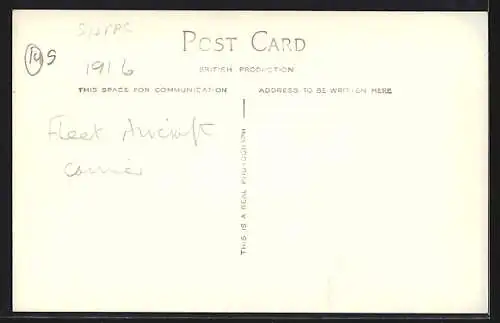 POST CARD
1916
BRITISH PRODUCTION
THIS SPACE FOR COMMUNICATION
ADDRESS TO BE WRITTEN HERE
THIS IS A REAL PHOTOGRAPH
Fleet Aircraft
Carrier